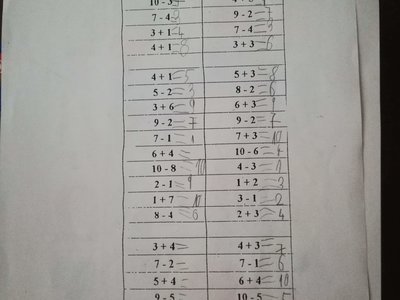 10 - 3
7 - 4 9 - 2 = 7
3 + 1 = 4 7 - 4 = 3
4 + 1 = 8 3 + 3 = 6
4 + 1 = 5 5 + 3 = 8
5 - 2 = 3 8 - 2 = 6
3 + 6 = 9 6 + 3 =
9 - 2 = 7 9 - 2 = 7
7 - 1 = 7 + 3 = 10
6 + 4 = 10 - 6 =
10 - 8 = 10 4 - 3 =
2 - 1 = 1 + 2 = 3
1 + 7 = 10 3 - 1 = 2
8 - 4 = 6 2 + 3 = 4
3 + 4 = 4 + 3 = 7
7 - 2 = 7 - 1 = 6
5 + 4 = 6 + 4 = 10
9 - 5 = 10 - 5 = 5